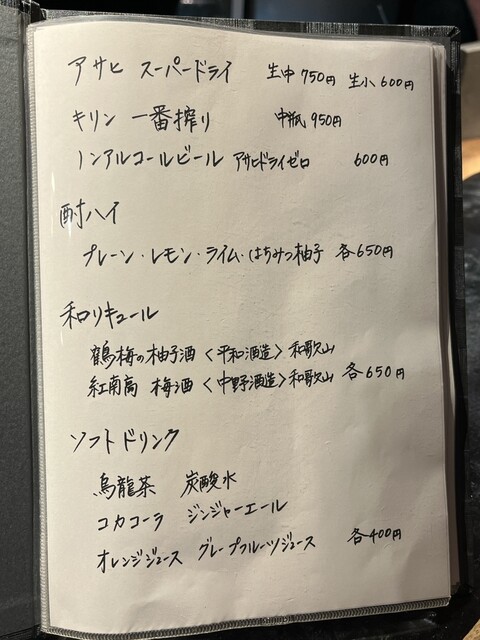 アサヒ スーパードライ 生中 750円 生小 600円
キリン 一番搾り 中瓶 950円
ノンアルコールビール アサヒドライゼロ 600円
酎ハイ
プレーン・レモン・ライム・はちみつ柚子 各650円
和リキュール
鶴梅の柚子酒 〈平和酒造〉 和歌山
紅南高 梅酒 〈中野酒造〉 和歌山 各650円
ソフトドリンク
烏龍茶 炭酸水
コカコーラ ジンジャーエール
オレンジジュース グレープフルーツジュース 各400円